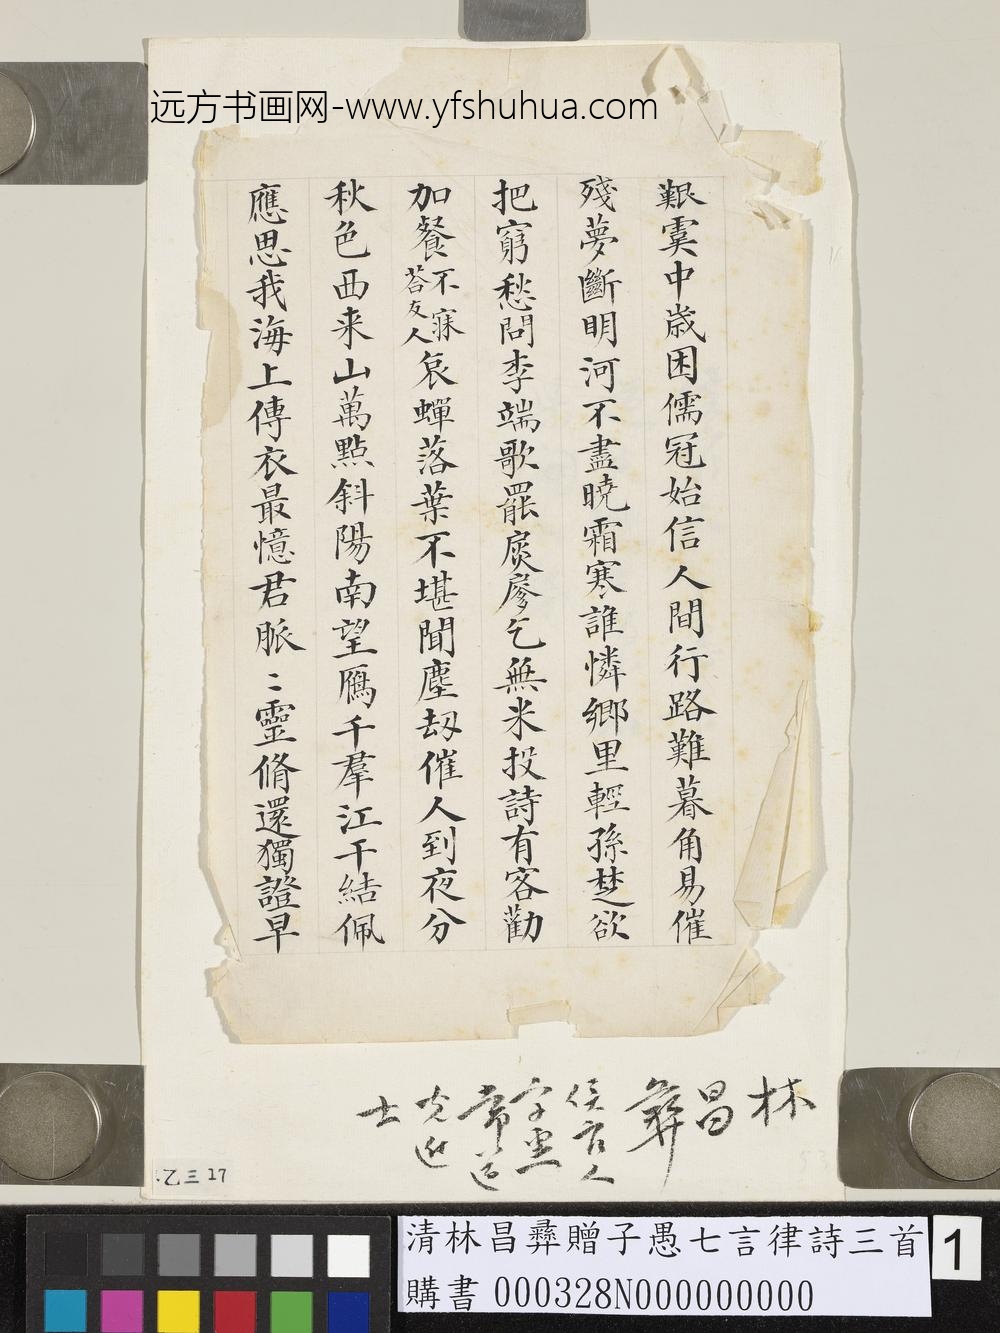 远方书画网-www.yfshuhua.com
艱虞中歲困儒冠始信人間行路難暮角易催
殘夢斷明河不盡曉霜寒誰憐鄉里輕孫楚欲
把窮愁問李端歌罷扊扅乞無米投詩有客勸
加餐不寐荅友人哀蟬落葉不堪聞塵刼催人到夜分
秋色西来山萬點斜陽南望鴈千羣江干結佩
應思我海上傳衣最憶君脈〻靈脩還獨證早
林昌彝
侯官人
字惠
常道
光進
士
乙三17
清林昌彝贈子愚七言律詩三首
購書 000328N000000000
1